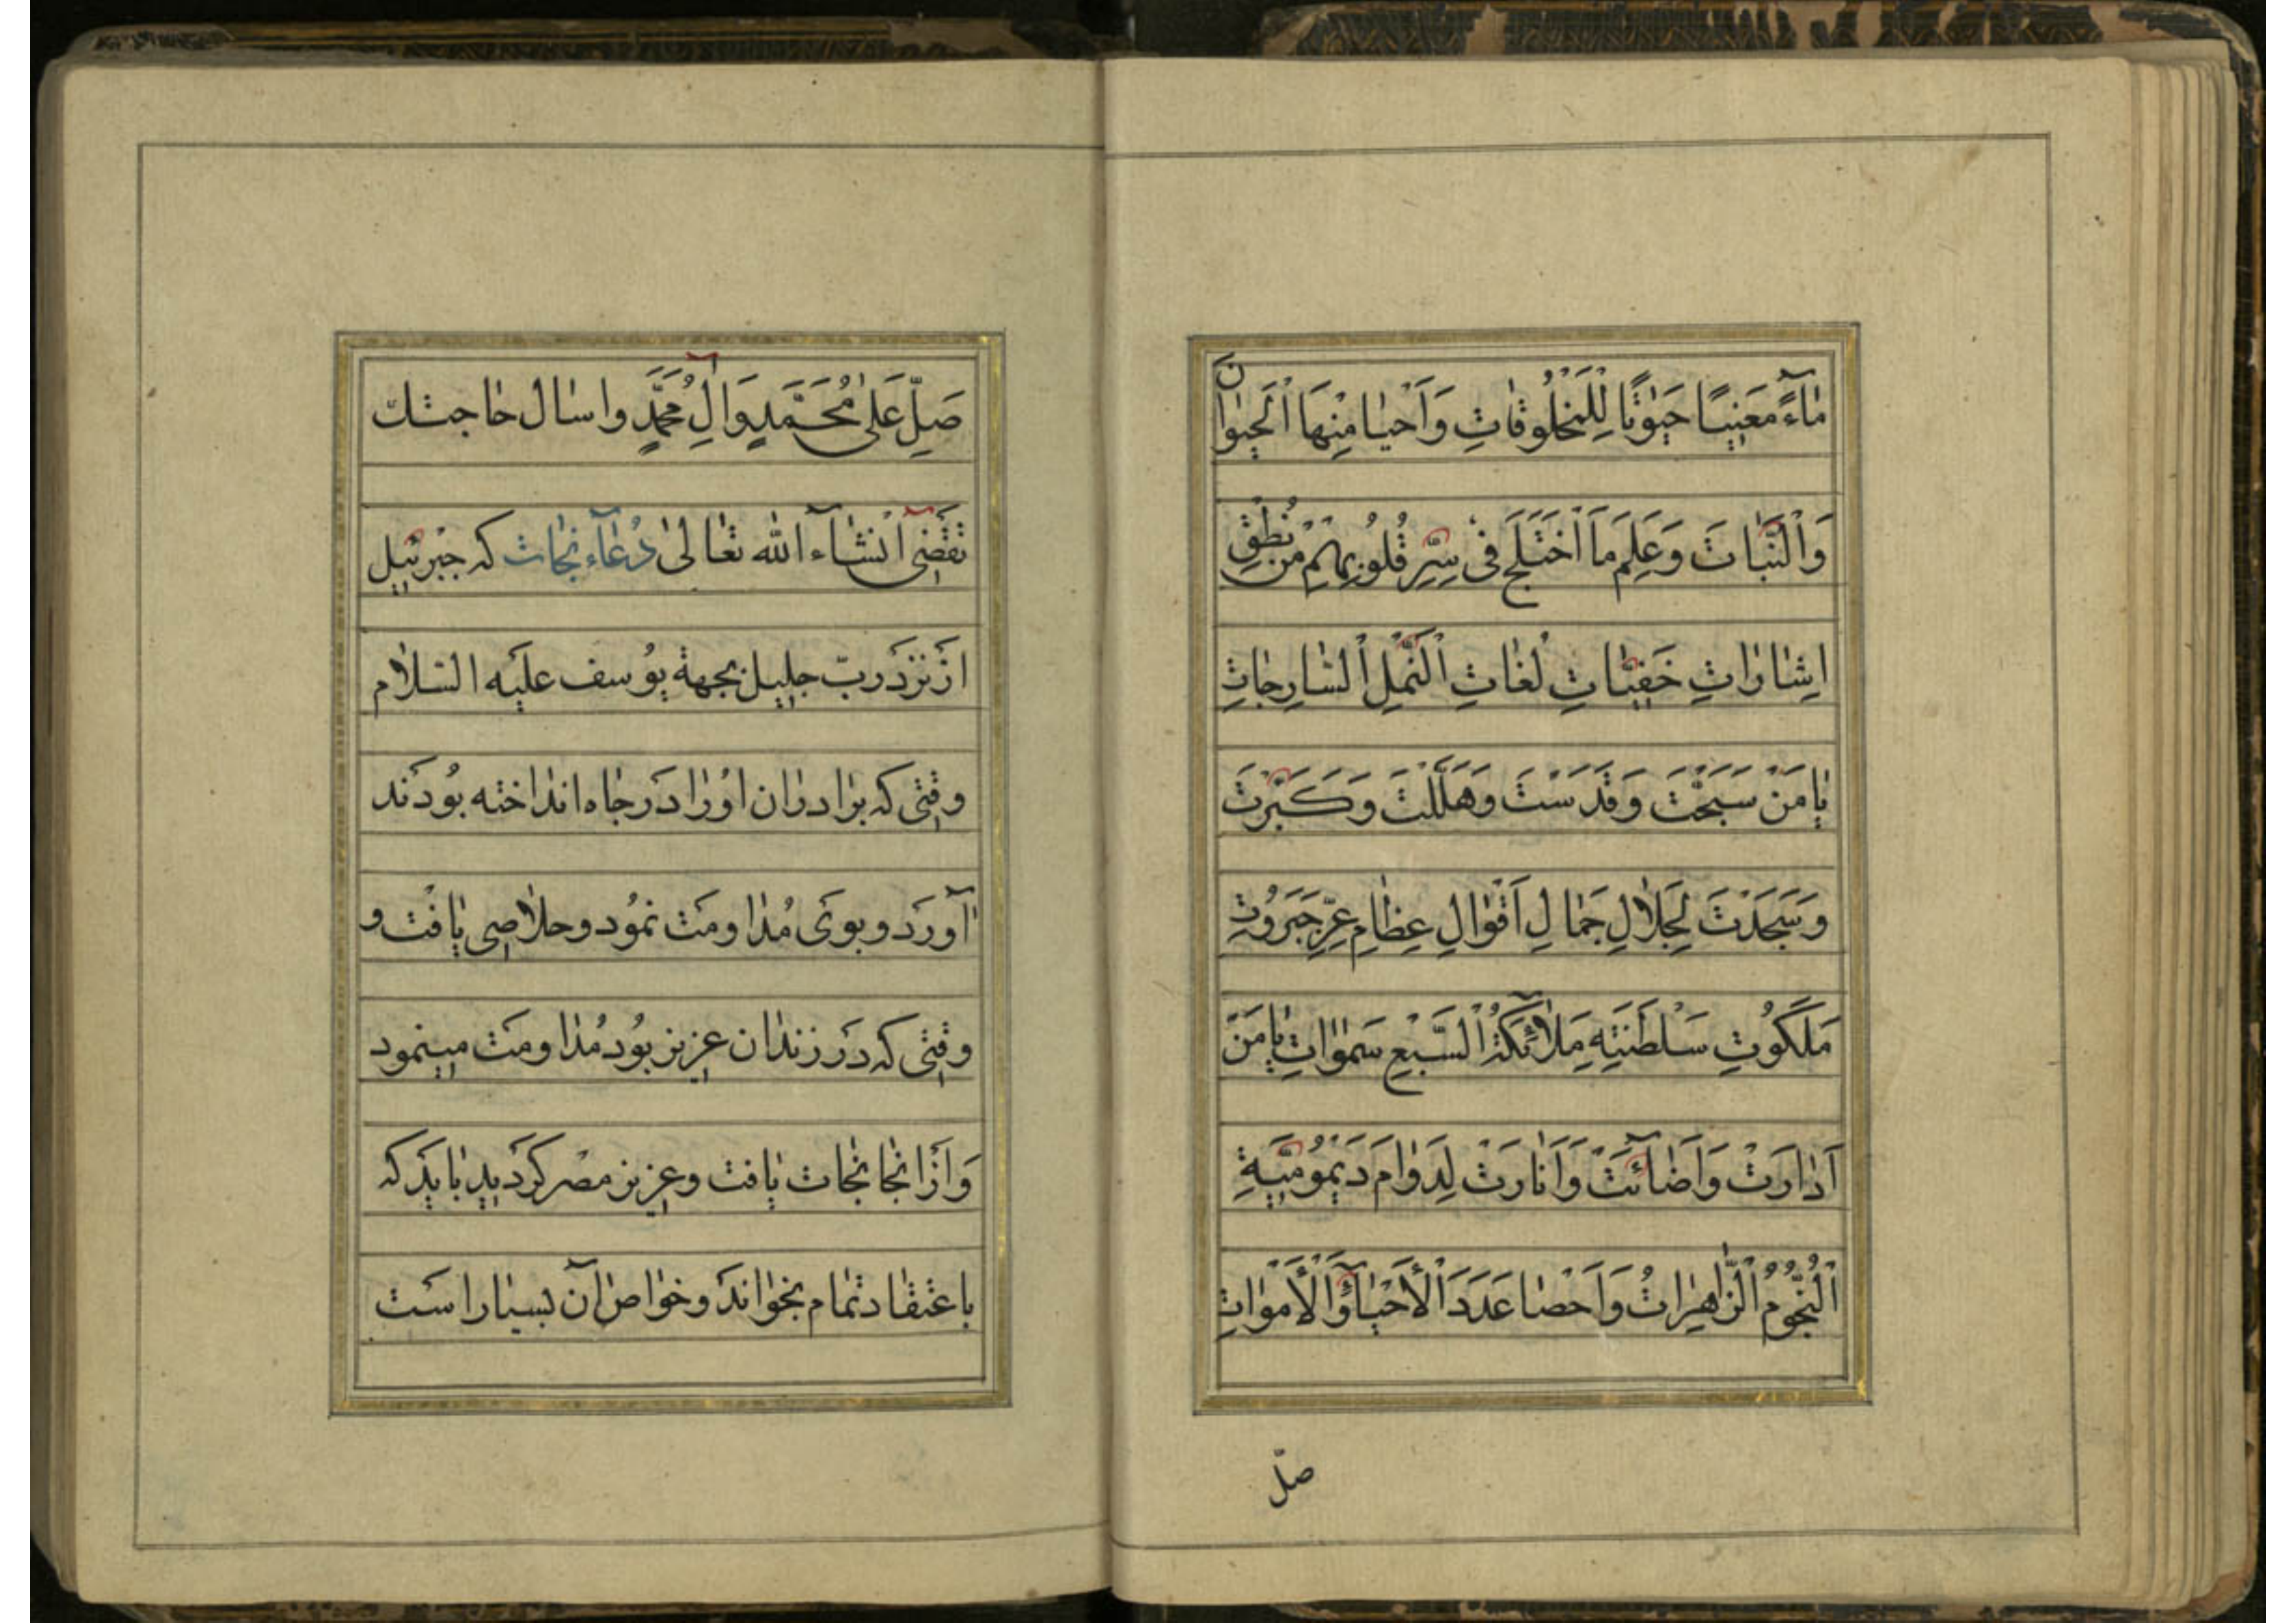 مَاءً مَعِينًا حَيٰوتًا لِلْمَخْلُوقَاتِ وَاَحْيَا مِنْهَا الْحَيَوَانَ
وَالنَّبَاتَ وَعَلِمَ مَا اخْتَلَجَ فِى سِرِّ قُلُوبِهِمْ مِنْ نُطْقِ
اِشَارَاتِ خَفِيَّاتِ لُغَاتِ النَّمْلِ السَّارِحَاتِ
يَا مَنْ سَبَّحَتْ وَقَدَّسَتْ وَهَلَّلَتْ وَكَبَّرَتْ
وَسَجَدَتْ لِجَلَالِ جَمَالِ اَقْوَالِ عِظَامِ عِزِّ جَبَرُوتِ
مَلَكُوتِ سَلْطَنَتِهِ مَلَائِكَةُ السَّبْعِ سَمٰوَاتِ يَا مَنْ
اَدَارَتْ وَاَضَائَتْ وَاَنَارَتْ لِدَوَامِ دَيْمُومِيَّةِ
النُّجُومُ الزَّاهِرَاتُ وَاَحْصَا عَدَدَ الْاَحْيَاءِ وَالْاَمْوَاتِ
صلّ
صَلِّ عَلٰى مُحَمَّدٍ وَالِ مُحَمَّدٍ واسال حاجتك
تقضى انشاء الله تعالى دُعاء نجات که جبرئیل
از نزد ربّ جلیل بجهة یوسف علیه السلام
وقتی که برادران اورا در چاه انداخته بودند
آورد و بوی مداومت نمود و خلاصی یافت و
وقتی که در زندان عزیز بود مداومت مینمود
و از انجا نجات یافت و عزیز مصر کردید باید که
باعتقاد تمام بخواند و خواص آن بسیار است